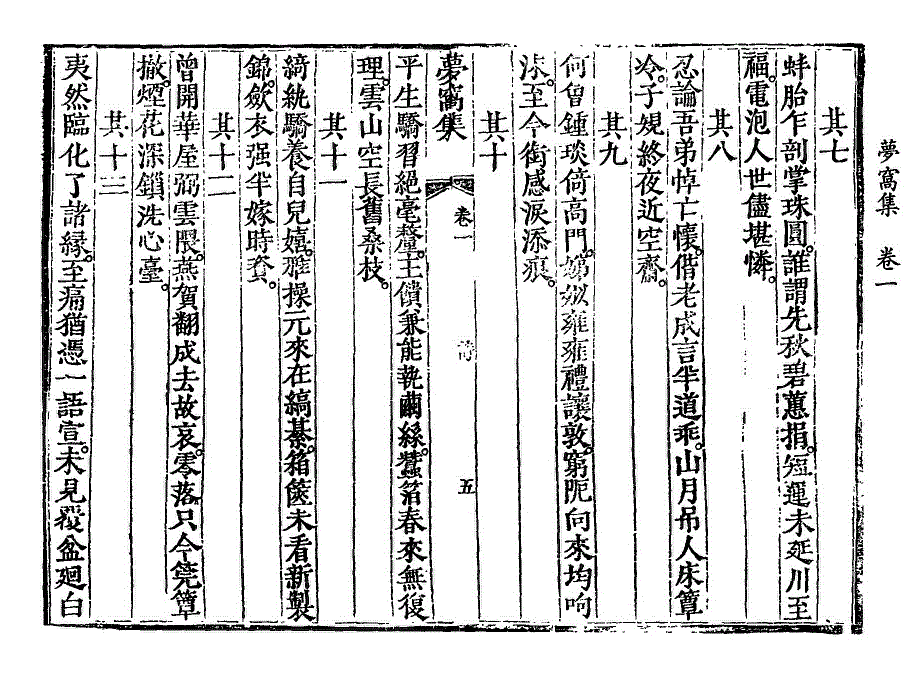 夢窩集 卷一
其七
蚌胎乍剖掌珠圓。誰謂先秋碧蕙捐。短運未延川至
福。電泡人世儘堪憐。
其八
忍論吾弟悼亡懷。偕老成言半道乖。山月吊人床簟
冷。子規終夜近空齋。
其九
何曾鍾琰倚高門。娣姒雍雍禮讓敦。窮阨向來均呴
沫。至今銜感淚添痕。
其十
夢窩集 卷一 詩 五
平生驕習絕毫釐。主饋兼能執繭絲。蠶箔春來無復
理。雲山空長舊桑枝。
其十一
綺紈驕養自兒嬉。雅操元來在縞綦。箱篋未看新製
錦。斂衣强半嫁時
其十二
曾開華屋弼雲隈。燕賀翻成去故哀。零落只今筦簟
撤。煙花深鎖洗心臺。
其十三
夷然臨化了諸緣。至痛猶憑一語宣。未見覆盆廻白